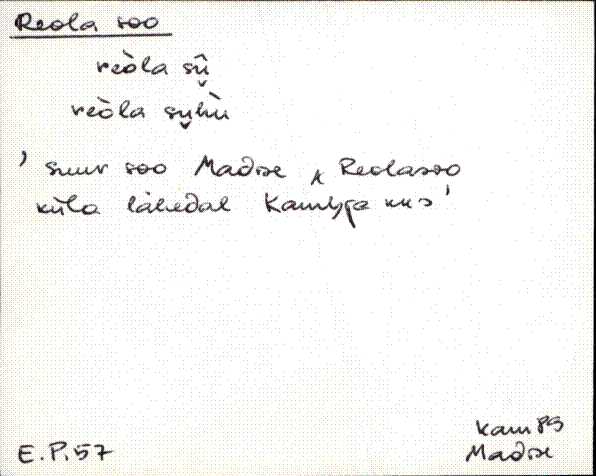 Reola soo
reòla sṷ̆̂
reòla sṷhù
' suur soo Madise ʌ Reolasoo
küla lähedal Kambja kks '
Kam 89
E.P.57 Madise